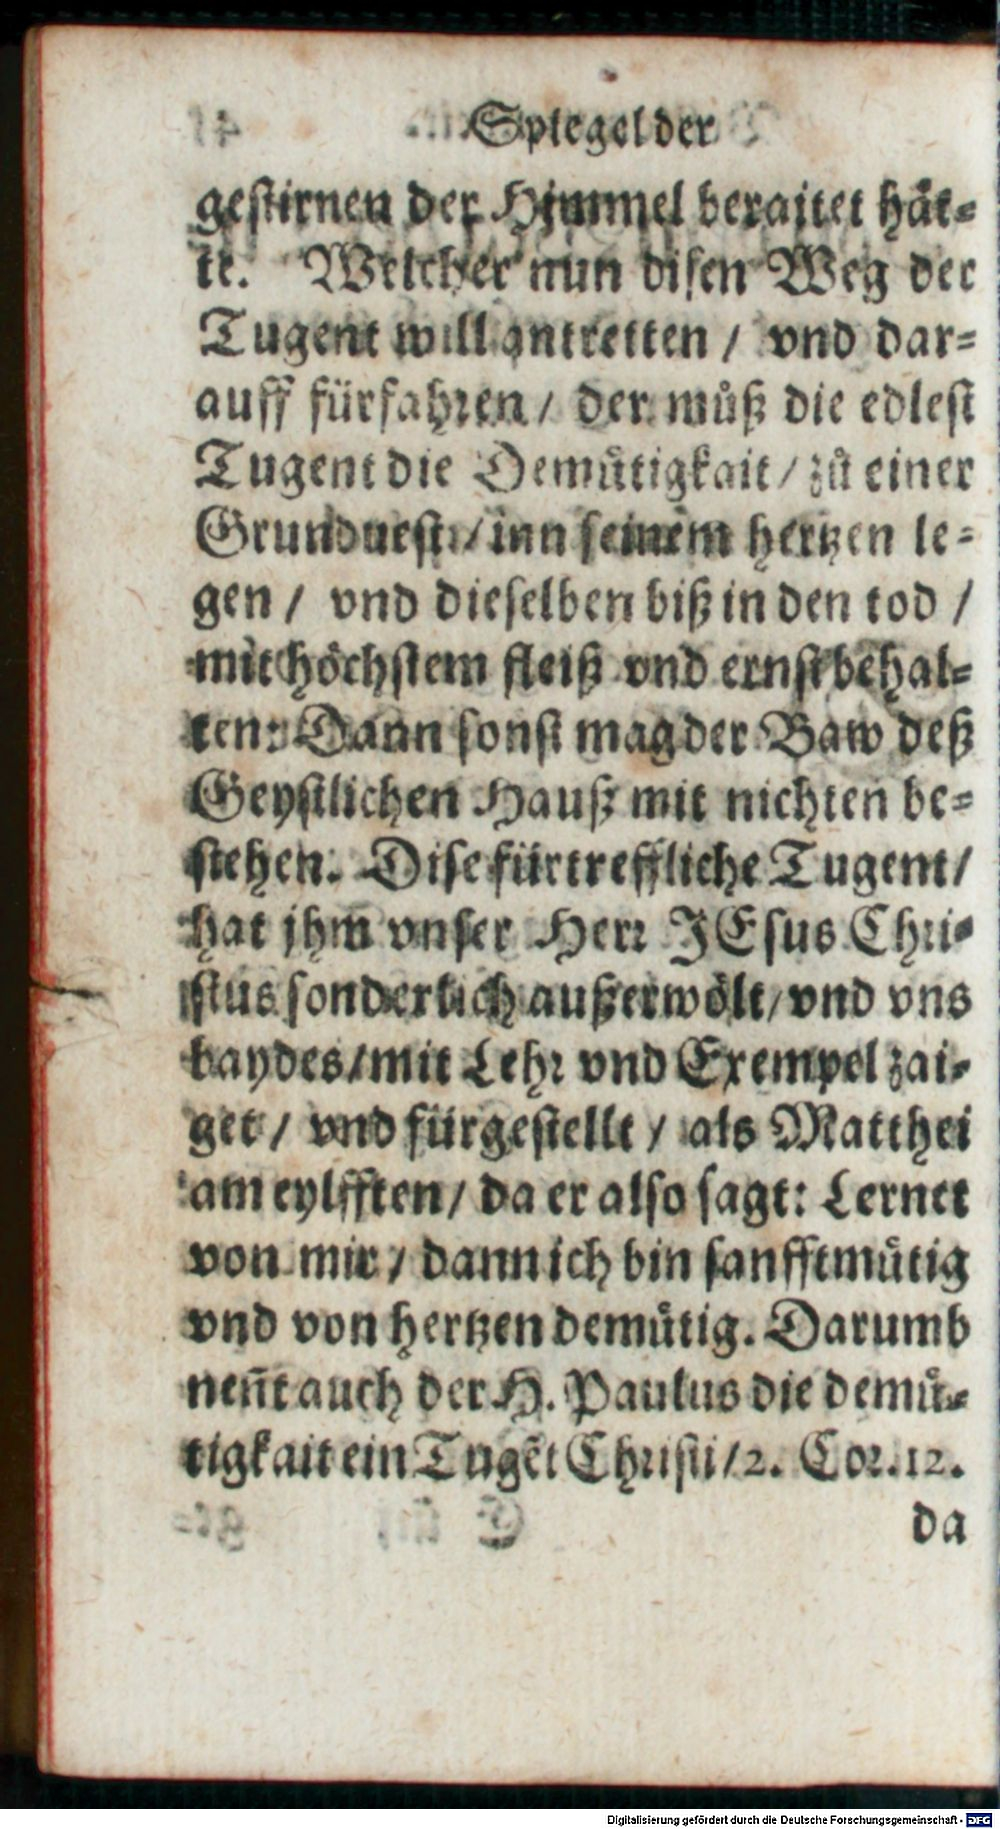 Spiegel der
gestirnen der Himmel beraitet hät-
te. Welcher nun disen Weg der
Tugent will antretten / vnd dar-
auff fürfahren / der můß die edlest
Tugent die Demůtigkait / zů einer
Grunduest / inn seinem hertzen le-
gen / vnd dieselben biß in den tod /
mit höchstem fleiß vnd ernst behal-
ten: Dann sonst mag der Baw deß
Geystlichen Hauß mit nichten be-
stehen. Dise fürtreffliche Tugent /
hat jhm vnser Herr JEsus Chri-
stus sonderlich außerwölt / vnd vns
baydes / mit Lehr vnd Exempel zai-
get / vnd fürgestellt / als Matthei
am eylfften / da er also sagt: Lernet
von mir / dann ich bin sanfftmůtig
vnd von hertzen demůtig. Darumb
nen̄t auch der H. Paulus die demů-
tigkait ein Tugēt Christi / 2. Cor. 12.
da
Digitalisierung gefördert durch die Deutsche Forschungsgemeinschaft - DFG